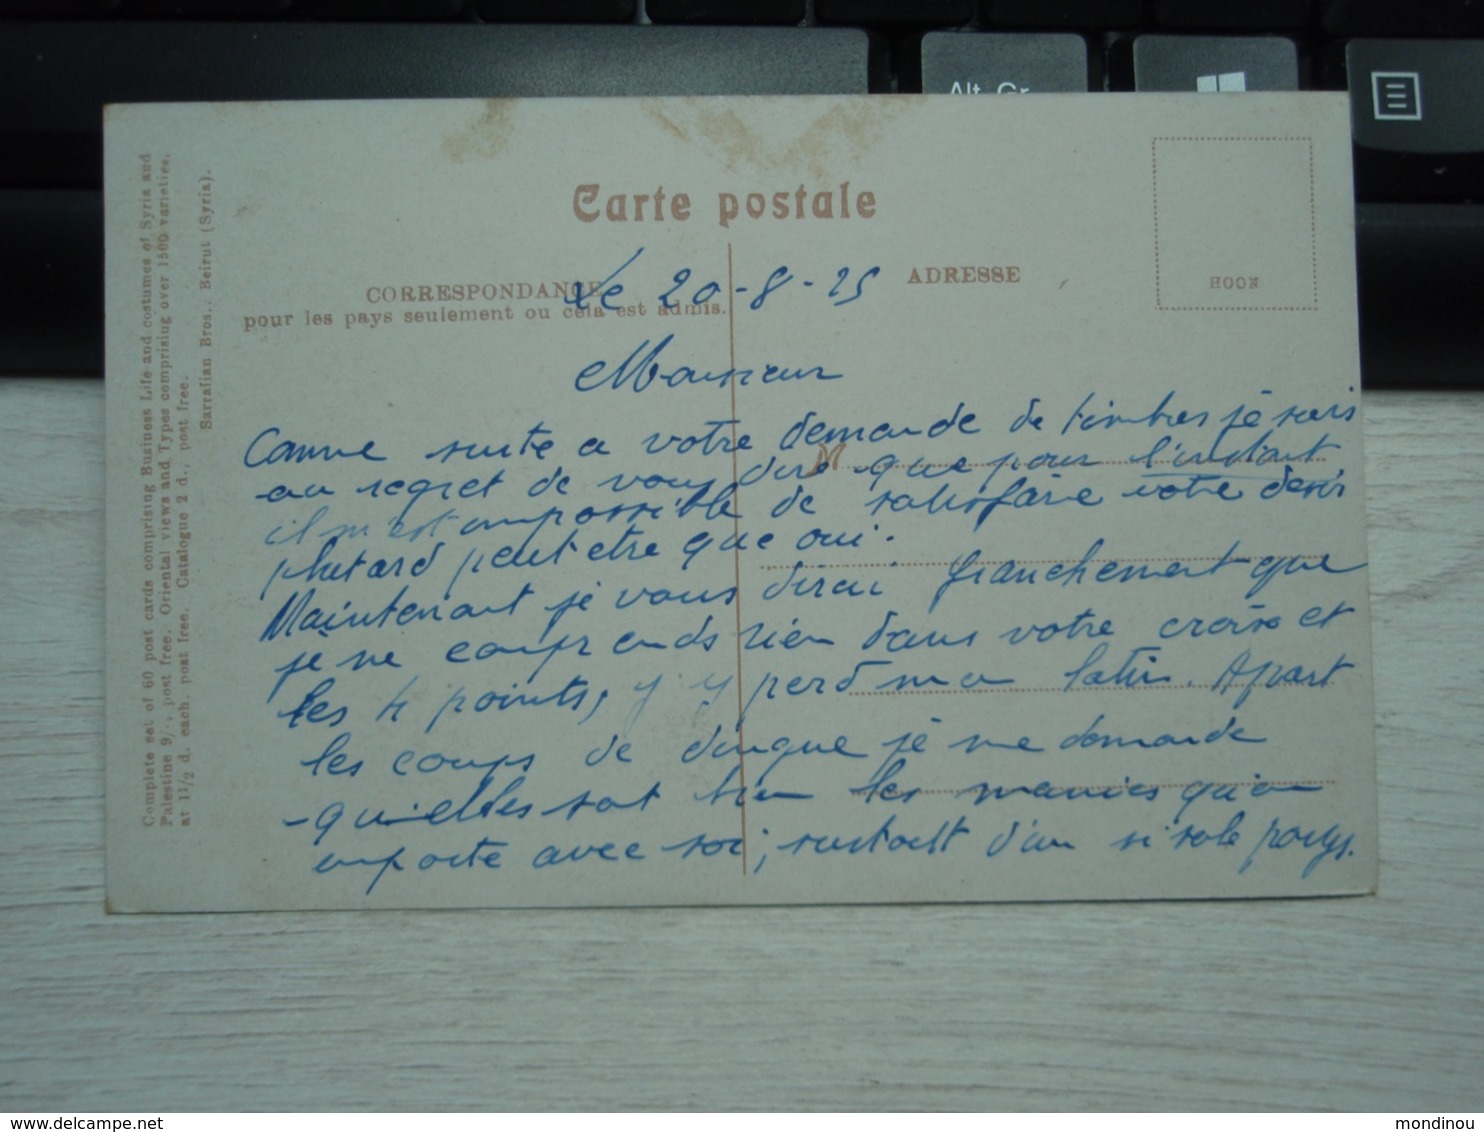 Alt Gr
Complete set of 60 post cards comprising Business Life and costumes of Syria and
Palestine 9/-, post free. Oriental views and Types comprising over 1500 varieties.
at 1 1/2 d. each. post free. Catalogue 2 d., post free.
Sarrafian Bros., Beirut (Syria).
Carte postale
CORRESPONDANCE
pour les pays seulement ou cela est admis.
ADRESSE
HOON
Le 20-8-25
Monsieur
M
Comme suite a votre demande de timbres je suis
au regret de vous dire que pour l'instant
il m'est impossible de satisfaire votre desir
plutard peut etre que oui.
Maintenant je vous dirai franchement que
je ne comprends rien dans votre croix et
les 4 points, j'y perd mon latin. Apart
les coups de dingue je me demande
qu'elles sont bien les manies qu'on
emporte avec soi, surtout d'un si sale pays.
delcampe.net
mondinou